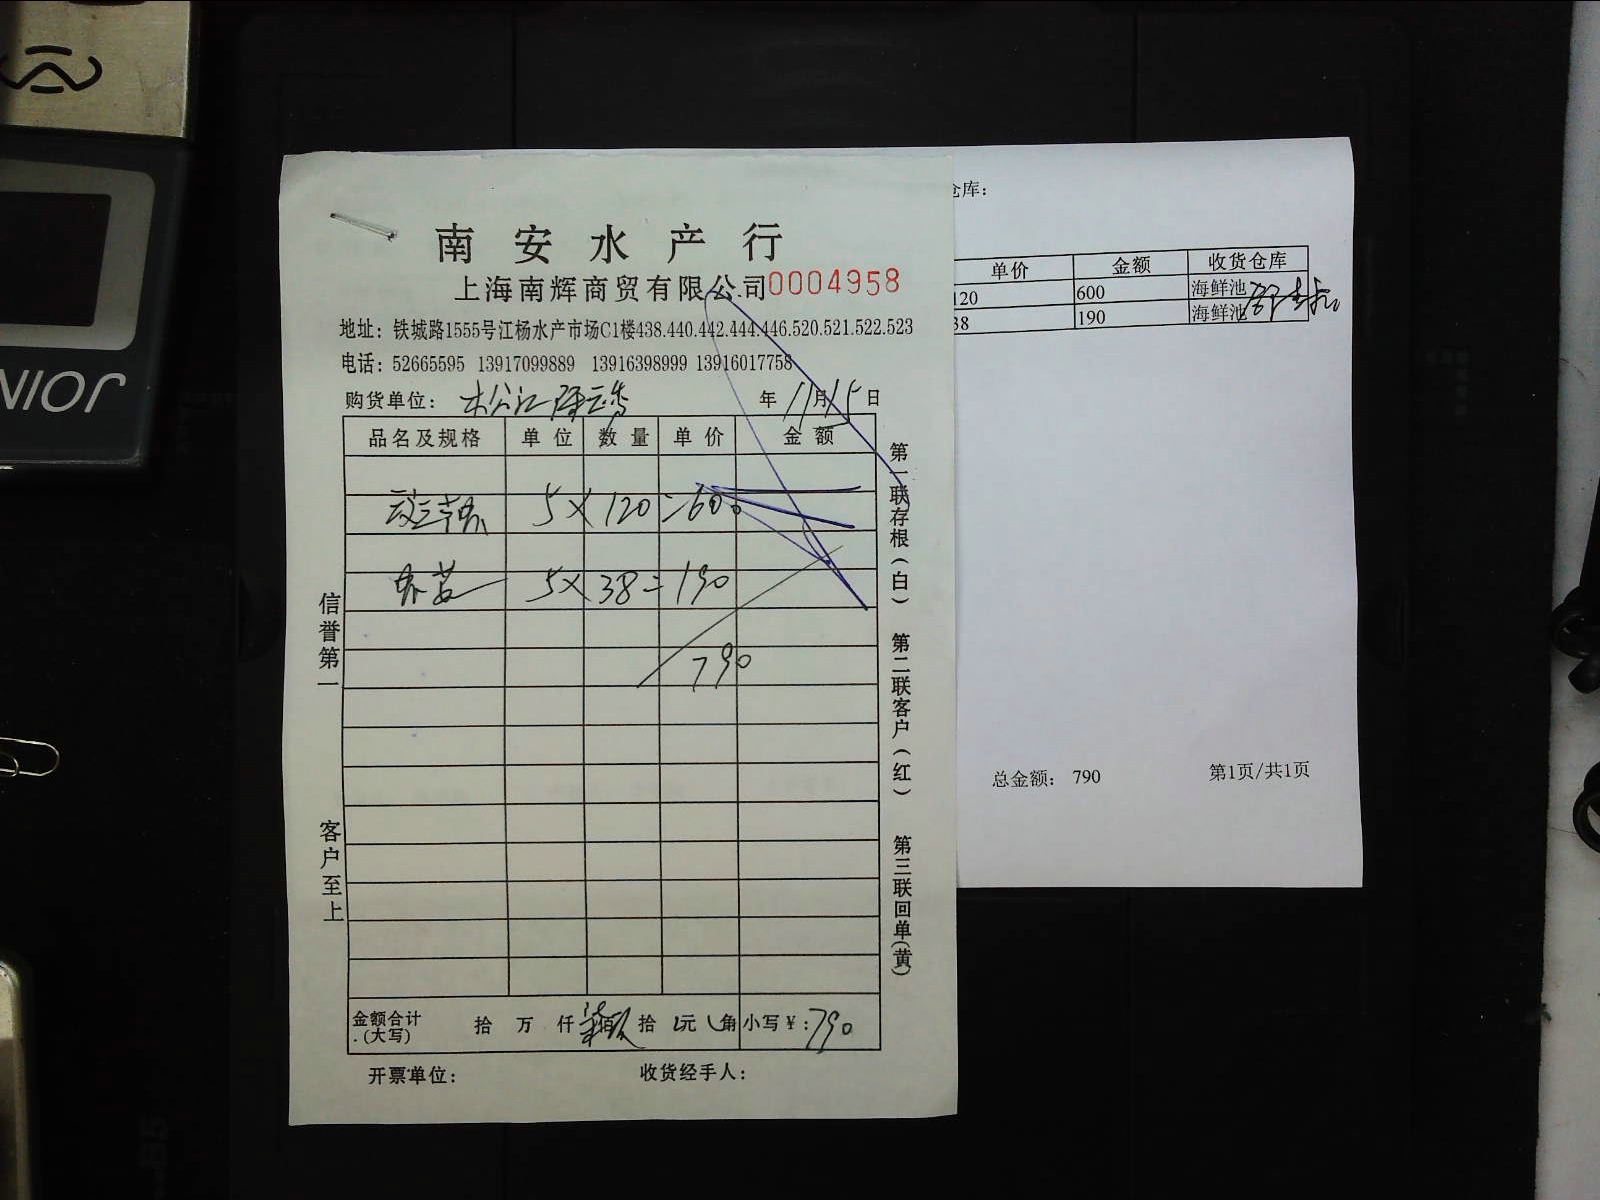 南安水产行
上海南辉商贸有限公司0004958
地址：铁城路1555号江杨水产市场C1楼438.440.442.444.446.520.521.522.523
电话：52665595 13917099889 13916398999 13916017758
购货单位：
年 11月15日
品名及规格 单位 数量 单价 金额
5×120=600
5×38=190
790
金额合计(大写) 拾 万 仟 柒佰玖拾 元 角 小写￥:790
开票单位: 收货经手人:
信誉第一
客户至上
第一联存根(白) 第二联客户(红) 第三联回单(黄)
仓库:
单价 金额 收货仓库
120 600 海鲜池
38 190 海鲜池
总金额: 790 第1页/共1页
NIOR